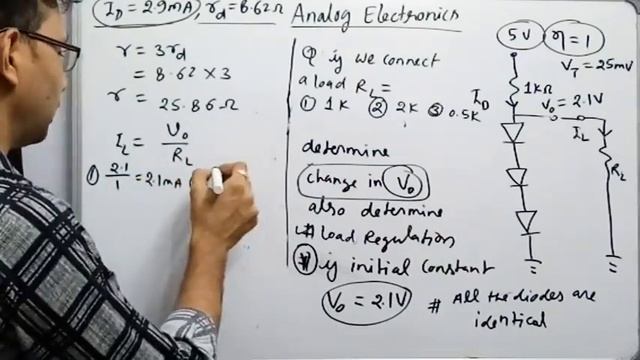 I_D = 2.9mA, r_d = 8.62Ω
Analog Electronics
r = 3r_d
= 8.62 × 3
r = 25.86Ω
I_L = V_0 / R_L
① 2.1/1 = 2.1mA
Q if we connect
a load R_L =
① 1K ② 2K ③ 0.5K
determine
change in V_0
also determine
# load Regulation
# if initial constant
V_0 = 2.1V
# All the diodes are
identical
5V η = 1
V_T = 25mV
1KΩ
I_D
V_0 = 2.1V
I_L
R_L